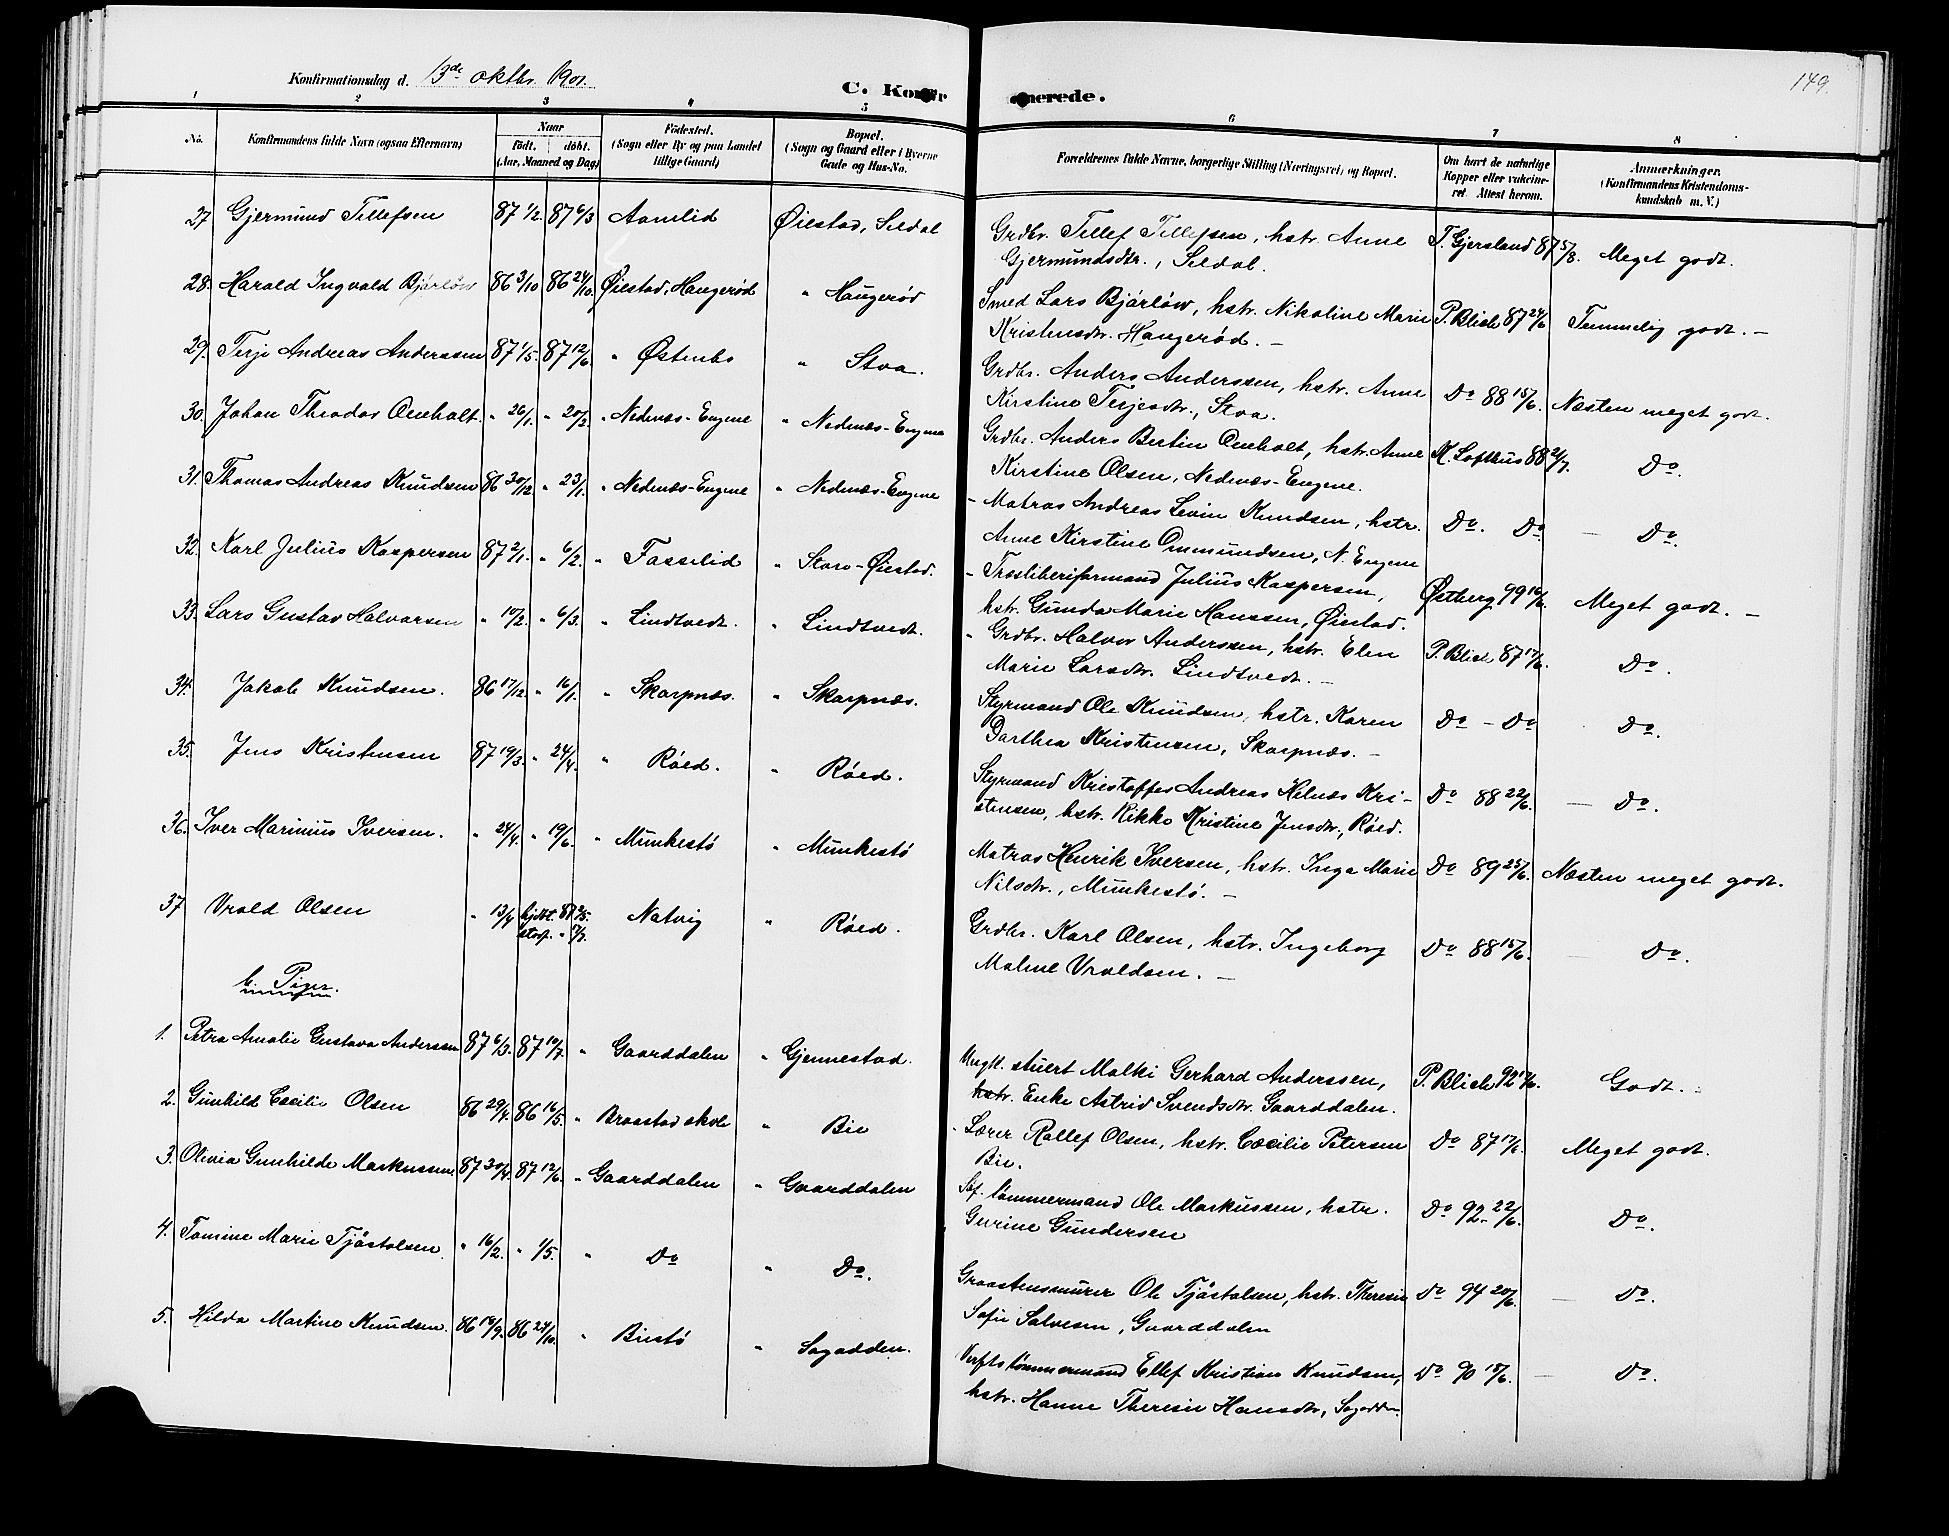 149.
Konfirmationsdag d. 13de oktbr. 1901.
C. Konfirmerede.
1 2 3 4 5 6 7 8
No.
Konfirmandens fulde Navn (ogsaa Efternavn)
Naar
födt. döbt.
(Aar, Maaned og Dag)
Födested.
(Sogn eller By og paa Landet
tillige Gaard)
Bopæl.
(Sogn og Gaard eller i Byerne
Gade og Hus-No.
Forældrenes fulde Navne, borgerlige Stilling (Næringsvei) og Bopæl.
Om havt de naturlige
Kopper eller vakcine-
ret. Attest herom.
Anmærkninger.
(Konfirmandens Kristendoms-
kundskab m. V.)
27 Gjermund Tellefsen 87 1/2. 87 6/3 Aamlid Øiestad, Seldal Grdbr. Tellef Tellefsen, hstr. Anne T. Gjersland 87 5/8. Meget godt.
Gjermundsdtr., Seldal.
28. Harald Ingvald Bjórlów 86 3/10 86 24/10. Øiestad, Haugeród " Haugeród Smed Lars Bjórlów, hstr. Nikoline Marie P. Blich 87 24/6 Temmelig godt. —
Kristensdtr. Haugeród. —
29. Terje Andreas Anderssen 87 1/5. 87 12/6. " Østenbo " Stoa. Grdbr. Anders Anderssen, hstr. Anne Do 88 15/6. Næsten meget godt.
Kirstine Terjesdtr., Stoa.
30. Johan Theodor Omholt. " 26/1. " 20/2. " Nedenæs-Engene " Nedenæs-Engene Grdbr. Anders Bertin Omholt, hstr. Anne M. Lofthus 88 2/7. Do.
Kirstine Olsen, Nedenæs-Engene.
31. Thomas Andreas Knudsen 86 30/12 " 23/1. " Nedenæs-Engene " Nedenæs-Engene - Matros Andreas Levin Knudsen, hstr. Do. Do — Do.
Anne Kirstine Ommundsen, N. Engene
32. Karl Julius Kaspersen 87 2/1. " 6/2. " Fasselid " Store-Øiestad. - Træsliberiformand Julius Kaspersen, Østberg 99 10/6. Meget godt. —
hstr. Gunda Marie Hanssen, Øiestad.
33. Lars Gustav Halvorsen " 10/2. " 6/3. " Lindtvedt. " Lindtvedt. " Grdbr. Halvor Anderssen, hstr. Elen P. Blich 87 17/6. Do.
Marie Larsdtr. Lindtvedt. —
34. Jakob Knudsen. 86 17/12 " 16/1. " Skarpnæs. " Skarpnæs. Styrmand Ole Knudsen, hstr. Karen Do - Do Do.
Dorthea Kristensen, Skarpnæs. —
35. Jens Kristensen 87 19/3. " 24/4. " Róed. " Róed. Styrmand Kristoffer Andreas Helnæs Kri- Do 88 22/6. — Do.
stensen, hstr. Rikke Kristine Jensdtr., Róed.
36. Iver Marinius Iversen. " 24/4. " 19/6. " Munkestó " Munkestó Matros Henrik Iversen, hstr. Inga Marie Do 89 25/6. Næsten meget godt.
Nilsdtr., Munkestó. —
37 Vrold Olsen " 13/4 hjdbt. 87 2/5. Natvig " Róed. Grdbr. Karl Olsen, hstr. Ingeborg Do 88 15/6. — Do.
stadf. " 3/7.
Malene Vroldsen. —
b. Piger.
1. Petra Amalie Gustava Anderssen 87 6/3. 87 10/7. " Gaarddalen " Gjennestad. Ungk. stuert Malki Gerhard Anderssen, P. Blich 92 17/6. Godt.
hstr. Enke Astrid Svendsdtr. Gaarddalen.
2. Gunhild Cecilie Olsen 86 29/4. 86 16/5. " Braastad skole " Bie Lærer Rollef Olsen, hstr. Cæcilie Petersen Do 87 17/6. Meget godt.
Bie.
3. Olivia Gunhilde Markussen 87 30/4. 87 12/6. " Gaarddalen " Gaarddalen Sk. tømmermand Ole Markussen, hstr. Do 92. 22/6. Do.
Gurine Gundersen
4. Tomine Marie Tjóstolsen " 16/2. " 1/5. " Do " Do. Graastensmurer Ole Tjóstolsen, hstr. Therese Do 94 20/6. — Do.
Sofie Salvesen, Gaarddalen
5. Hilda Martine Knudsen. 86 19/9. 86 24/10. " Biestó " Sagodden. Verftstømmermand Ellef Kristian Knudsen, Do 90 18/6. — Do.
hstr. Hanne Theresie Hansdtr., Sagodden.